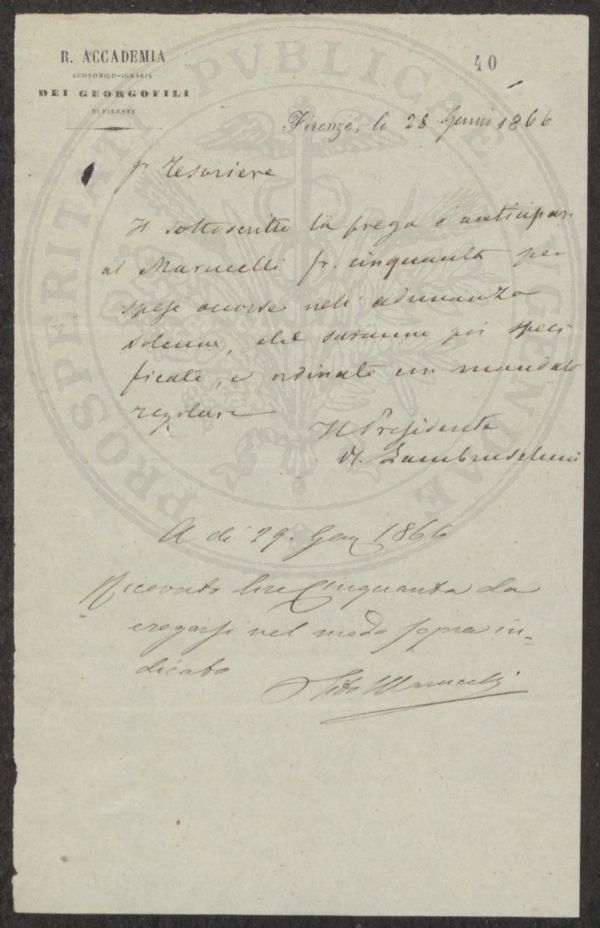 R. ACCADEMIA
ECONOMICO-AGRARIA
DEI GEORGOFILI
DI FIRENZE
40
Firenze, lo 28 Genn. 1866
Tesoriere
Il sottoscritto la prega d'anticipare
al Marucelli fr. cinquanta per
spese occorse nell' adunanza
solenne, che saranno poi speci
ficate, e ordinate con mandato
regolare
Il Presidente
Lambruschini
A dì 29. Gen 1866
Ricevuto lire Cinquanta da
erogarsi nel modo sopra in=
dicato
Marucelli
PROSPERITATI PUBLICAE AUGENDAE